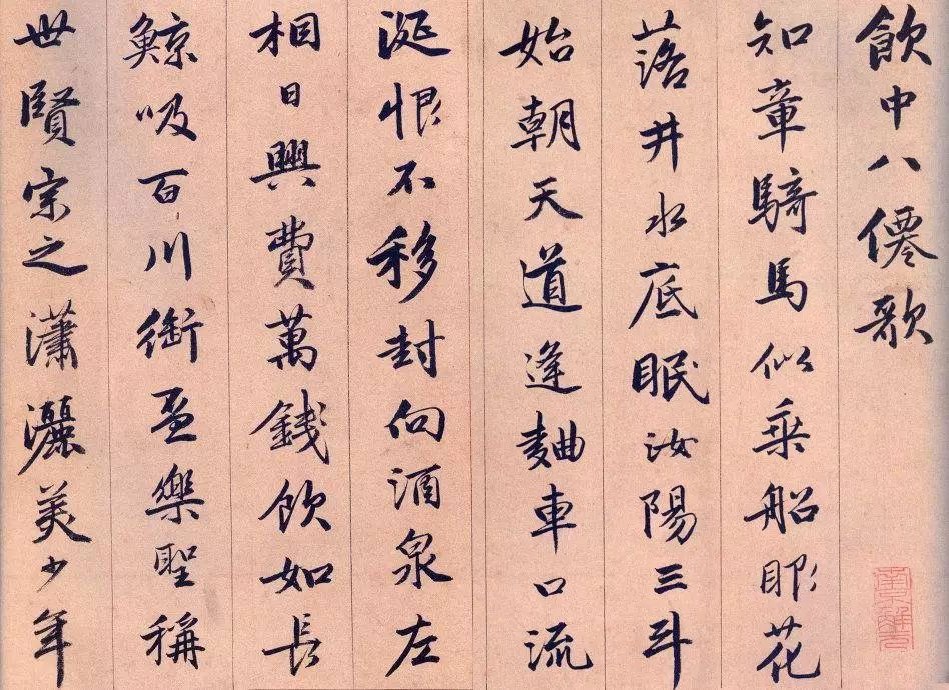 飲中八僊歌
知章騎馬似乘船眼花
落井水底眠汝陽三斗
始朝天道逢麯車口流
涎恨不移封向酒泉左
相日興費萬錢飲如長
鯨吸百川銜盃樂聖稱
世賢宗之瀟灑美少年